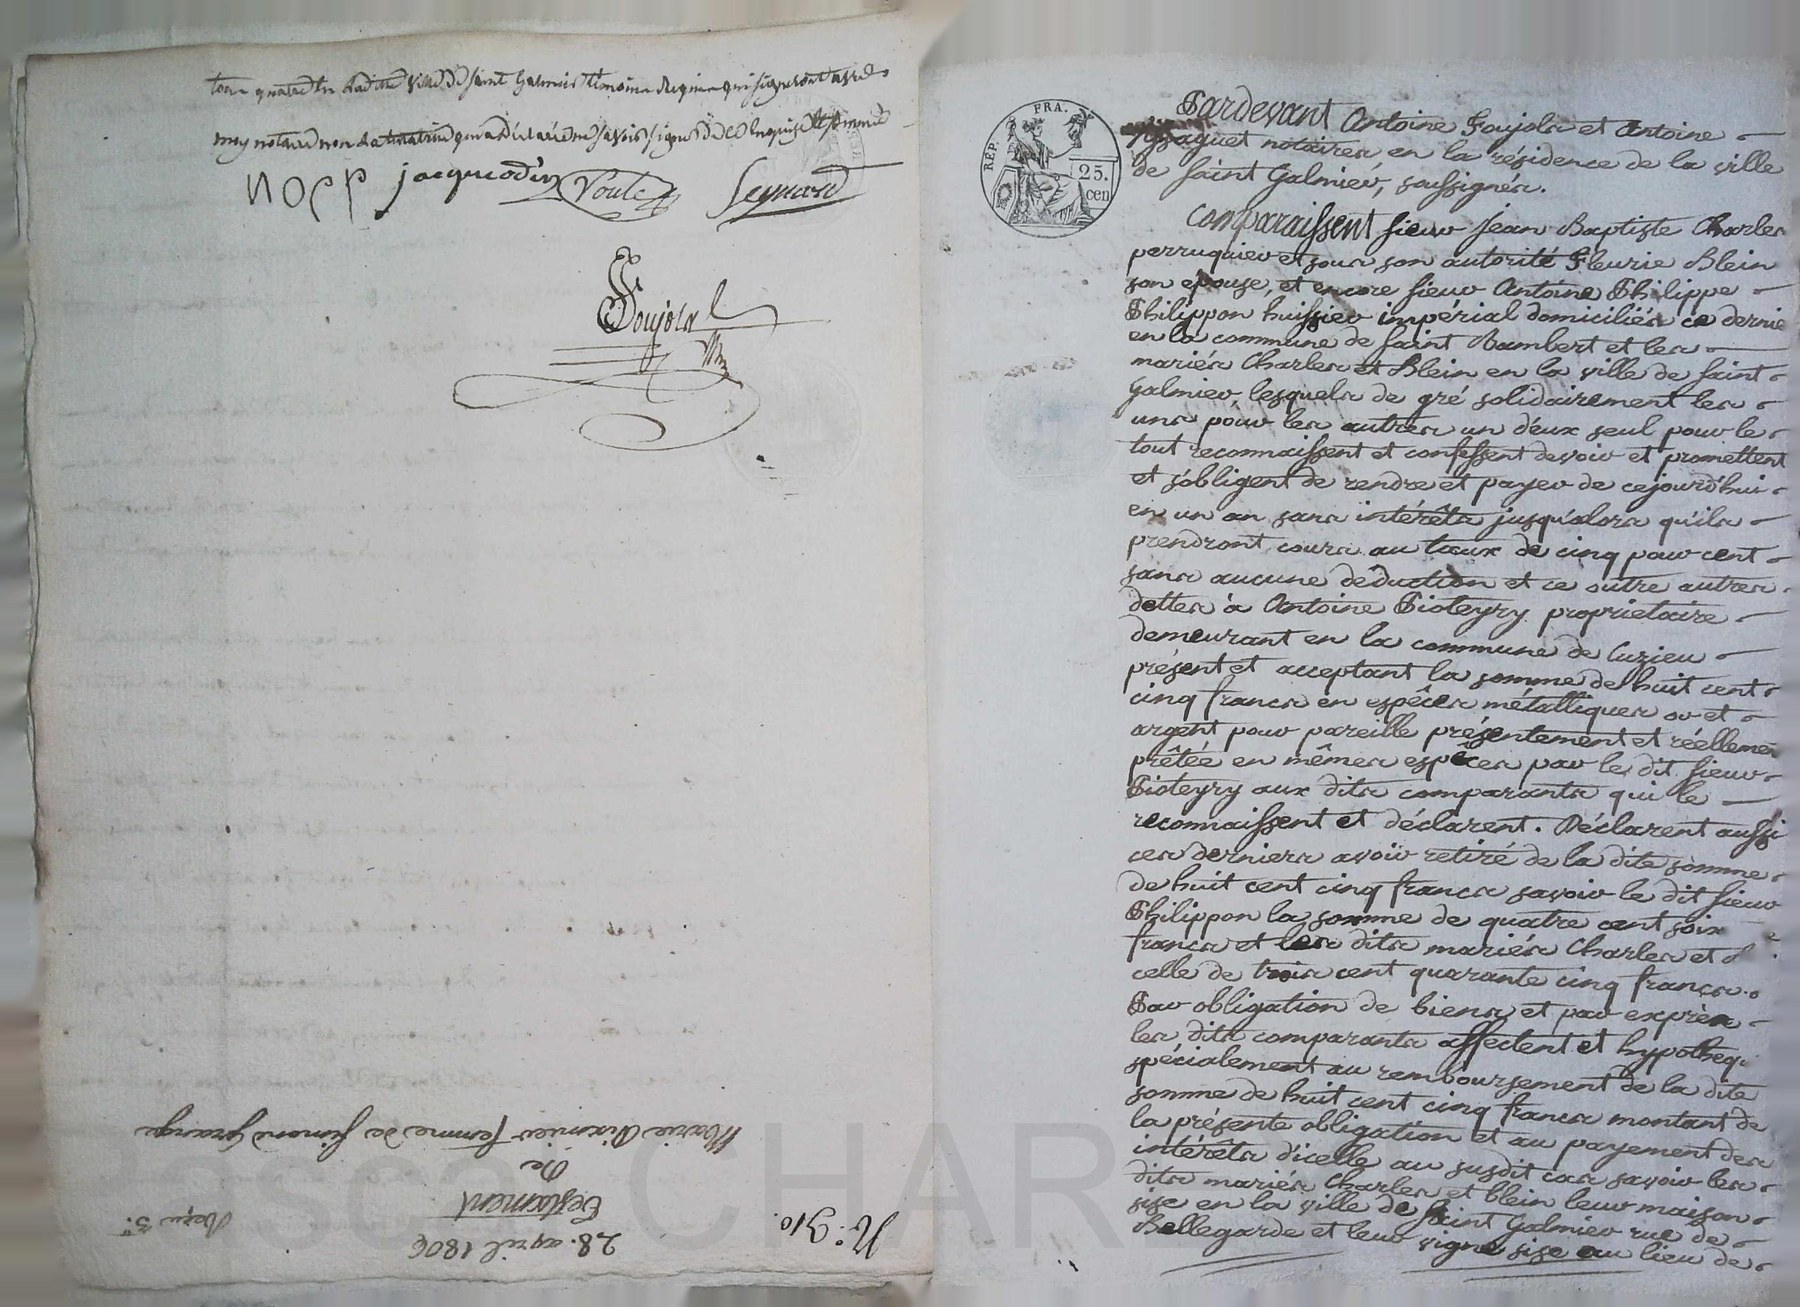 tous quatre en la ditte ville de saint Galmier témoins requis qui signeront avec
moy notaire non la testatrice qui a déclaré ne savoir signer de ce enquise et sommée
jacquiodin Poule Seguard
Poujola
Marie Viannier femme de Simond Grange
De
Testament
28. avril 1806
N.° 310.
Reçu 3.
REP. FRA.
25.
cen
Pardevant Antoine Poujola et Antoine
Pissaguet notaires en la résidence de la ville
de Saint Galmier, soussignés.
Comparaissent sieur Jean Baptiste Charles
perruquier et sous son autorité Fleurie Blein
son epouse, et encore sieur Antoine Philippe
Philippon huissier impérial domiciliés ce dernie
en la commune de Saint Rambert et les
mariés Charles et Blein en la ville de Saint
Galmier, lesquels de gré solidairement les
uns pour les autres un d'eux seul pour le
tout reconnaissent et confessent devoir et promettent
et s'obligent de rendre et payer de cejourd'hui
en un an sans intérêts jusqu'alors qu'ils
prendront cours au taux de cinq pour cent
sans aucune déduction et ce outre autres
dettes à Antoine Pioteyry proprietaire
demeurant en la commune de Cuzieu
présent et acceptant la somme de huit cent
cinq francs en espèces métalliques or et
argent pour pareille présentement et réellemen
prêtée en mêmes espèces par le dit sieur
Pioteyry aux dits comparants qui le
reconnaissent et déclarent. Déclarent aussi
ces derniers avoir retiré de la dite somme
de huit cent cinq francs savoir le dit sieur
Philippon la somme de quatre cent soix
francs et les dits mariés Charles et
celle de trois cent quarante cinq francs.
Par obligation de biens et par exprès
les dits comparants affectent et hypotheq
spécialement au remboursement de la dite
somme de huit cent cinq francs montant de
la présente obligation et au payement des
intérêts d'icelle au susdit cas savoir les
dits mariés Charles et blein leur maison
sise en la ville de Saint Galmier rue de
Bellegarde et leur vigne sise au lieu de